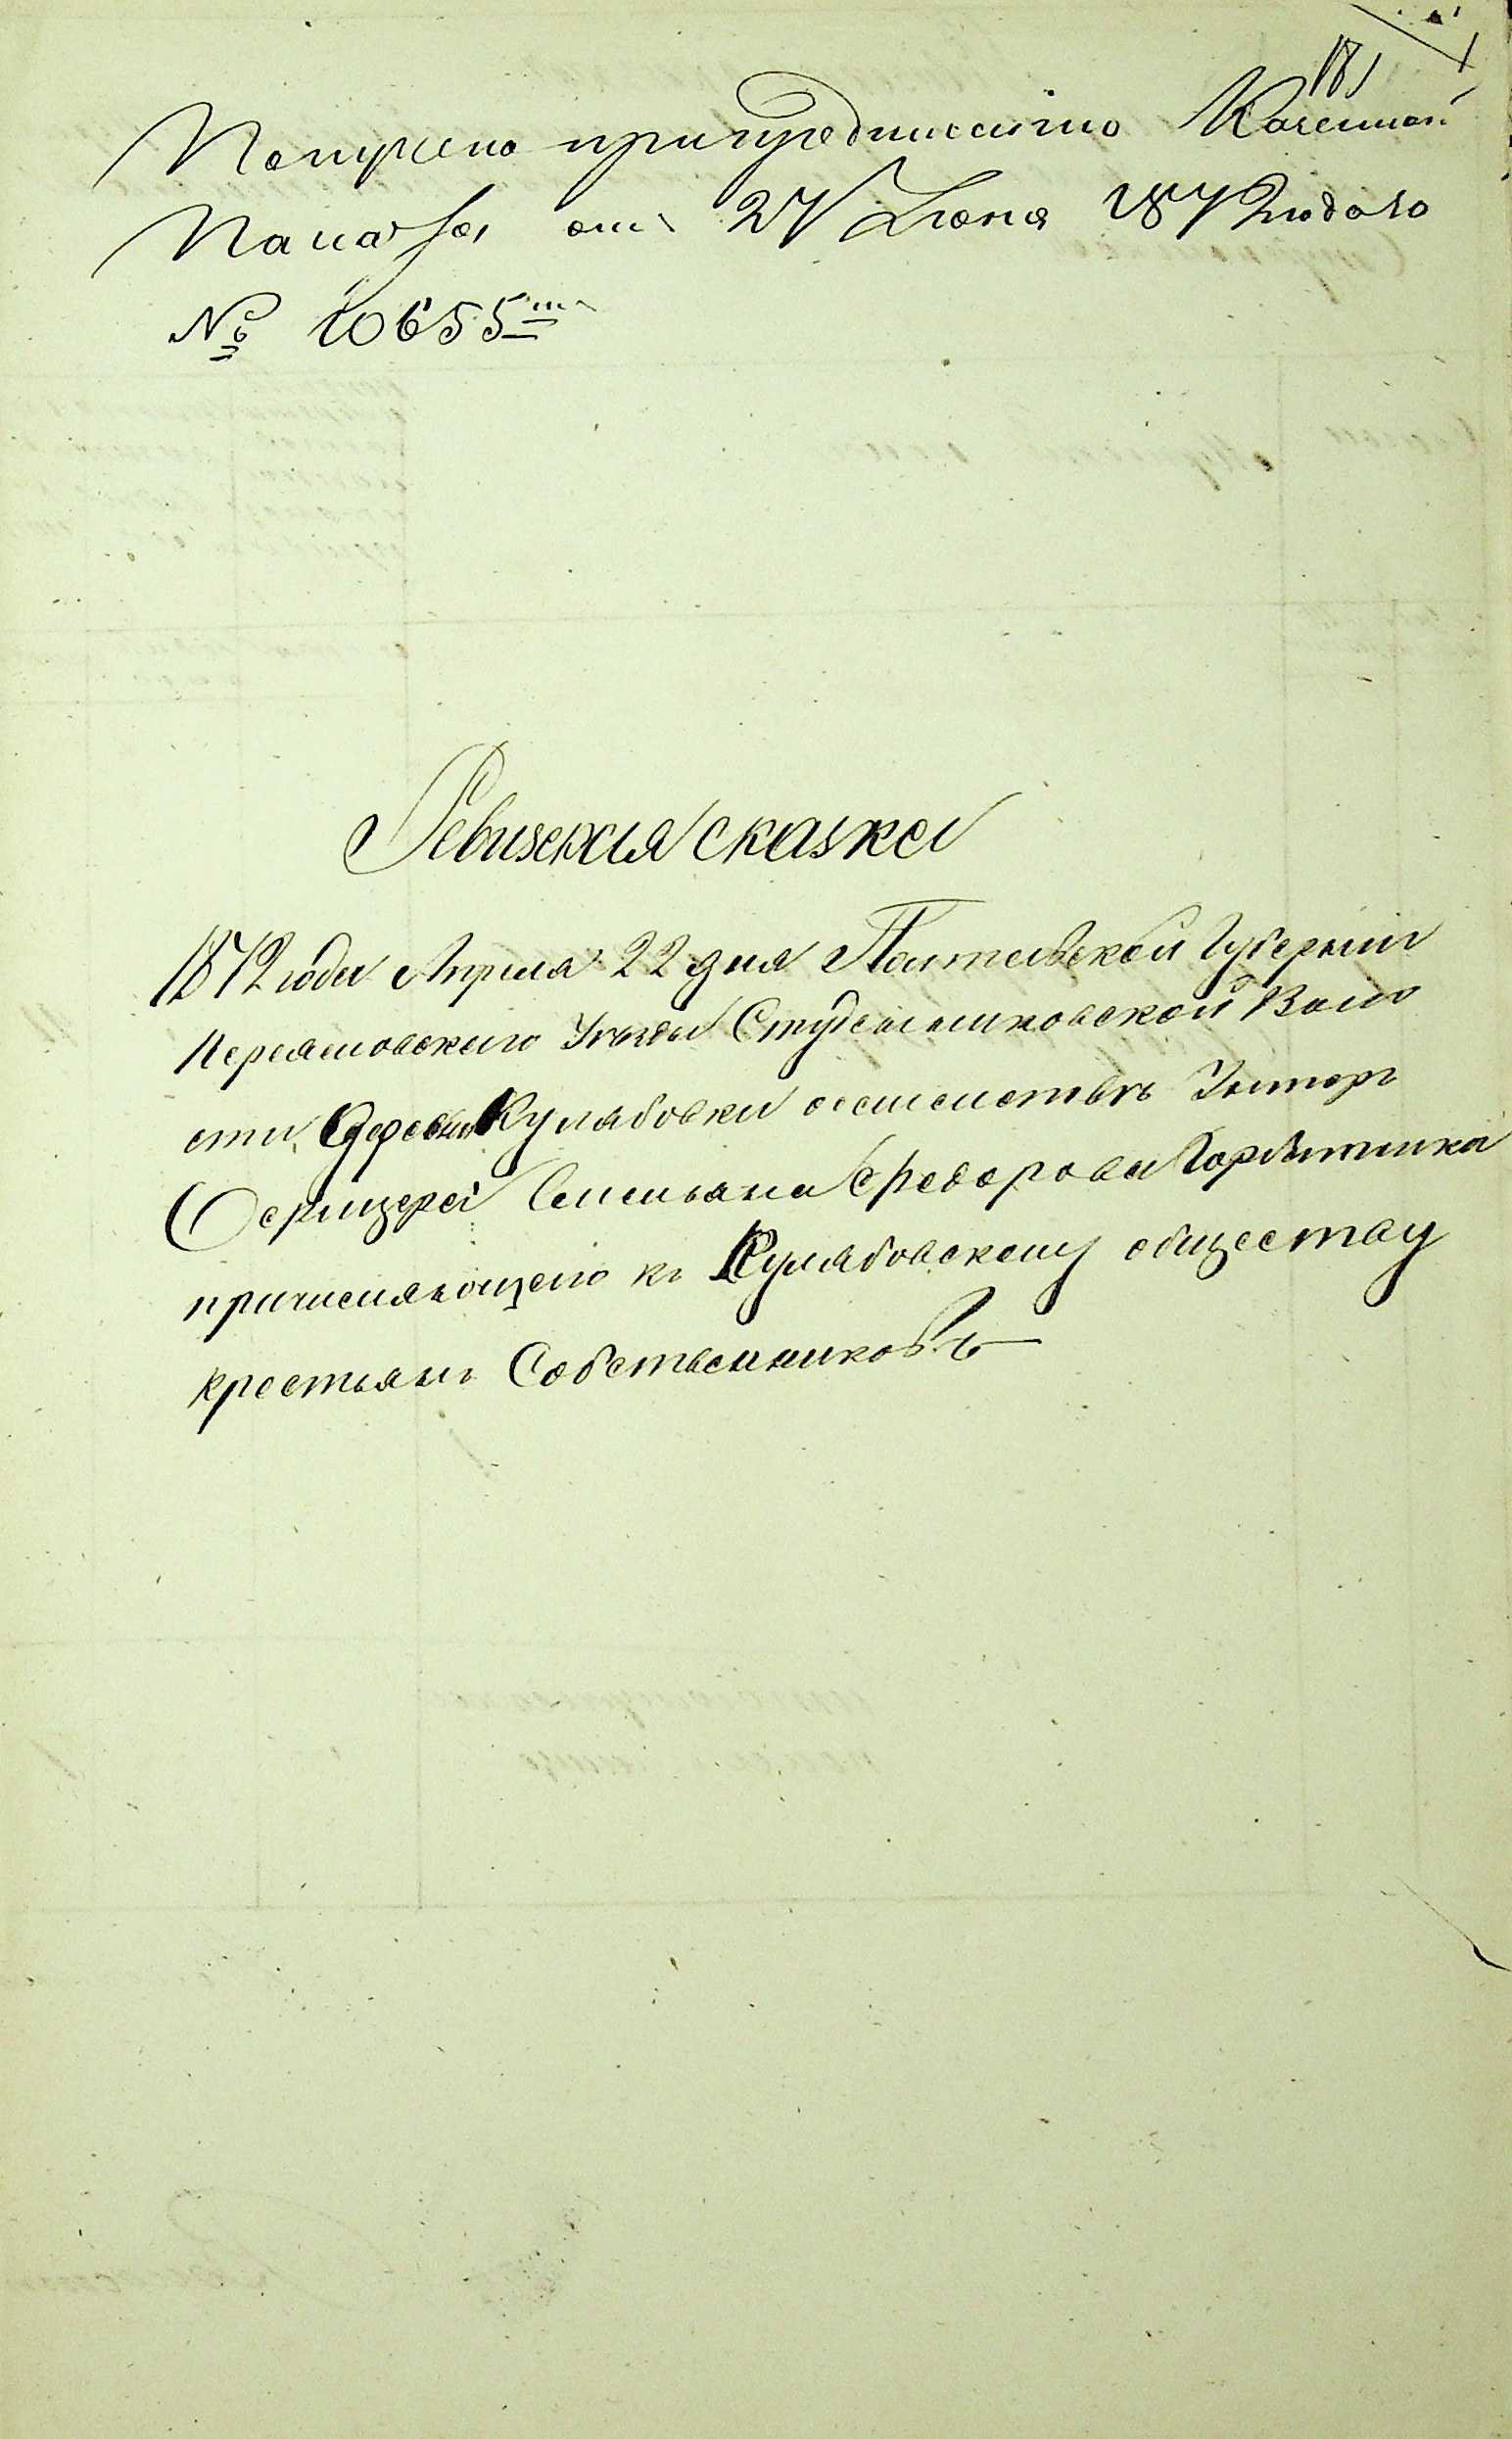 181
Получено при предписании Казенной
Палаты отъ 27 Іюня 1872 года за
№ 10655мъ
Ревизская сказка
1872 года Апреля 22 дня Полтавской Губерніи
Переяславскаго Уезда Студениковской Воло
сти, деревни Кулябовки семейства Унтеръ
Офицера Емельяна Федорова Горбатка
причисляющего къ Кулябовскому обществу
крестьянъ Собственниковъ